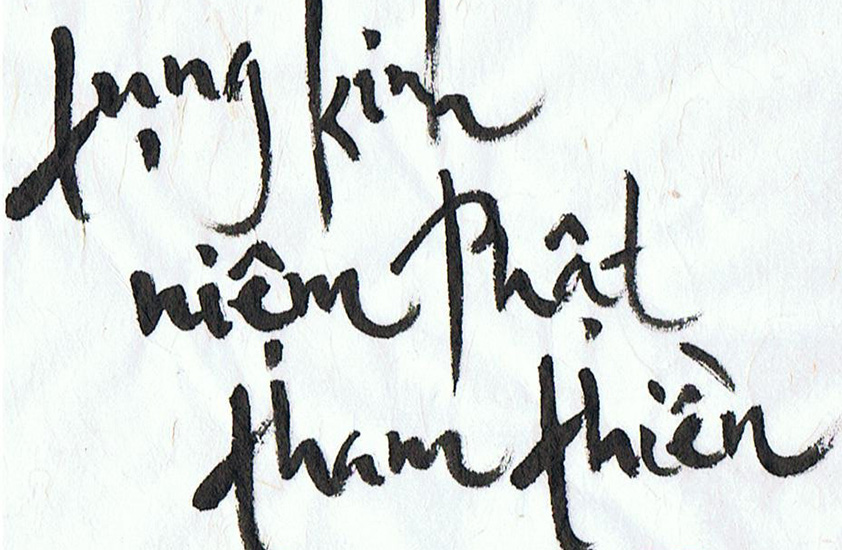 tụng kinh
niệm Phật
tham thiền